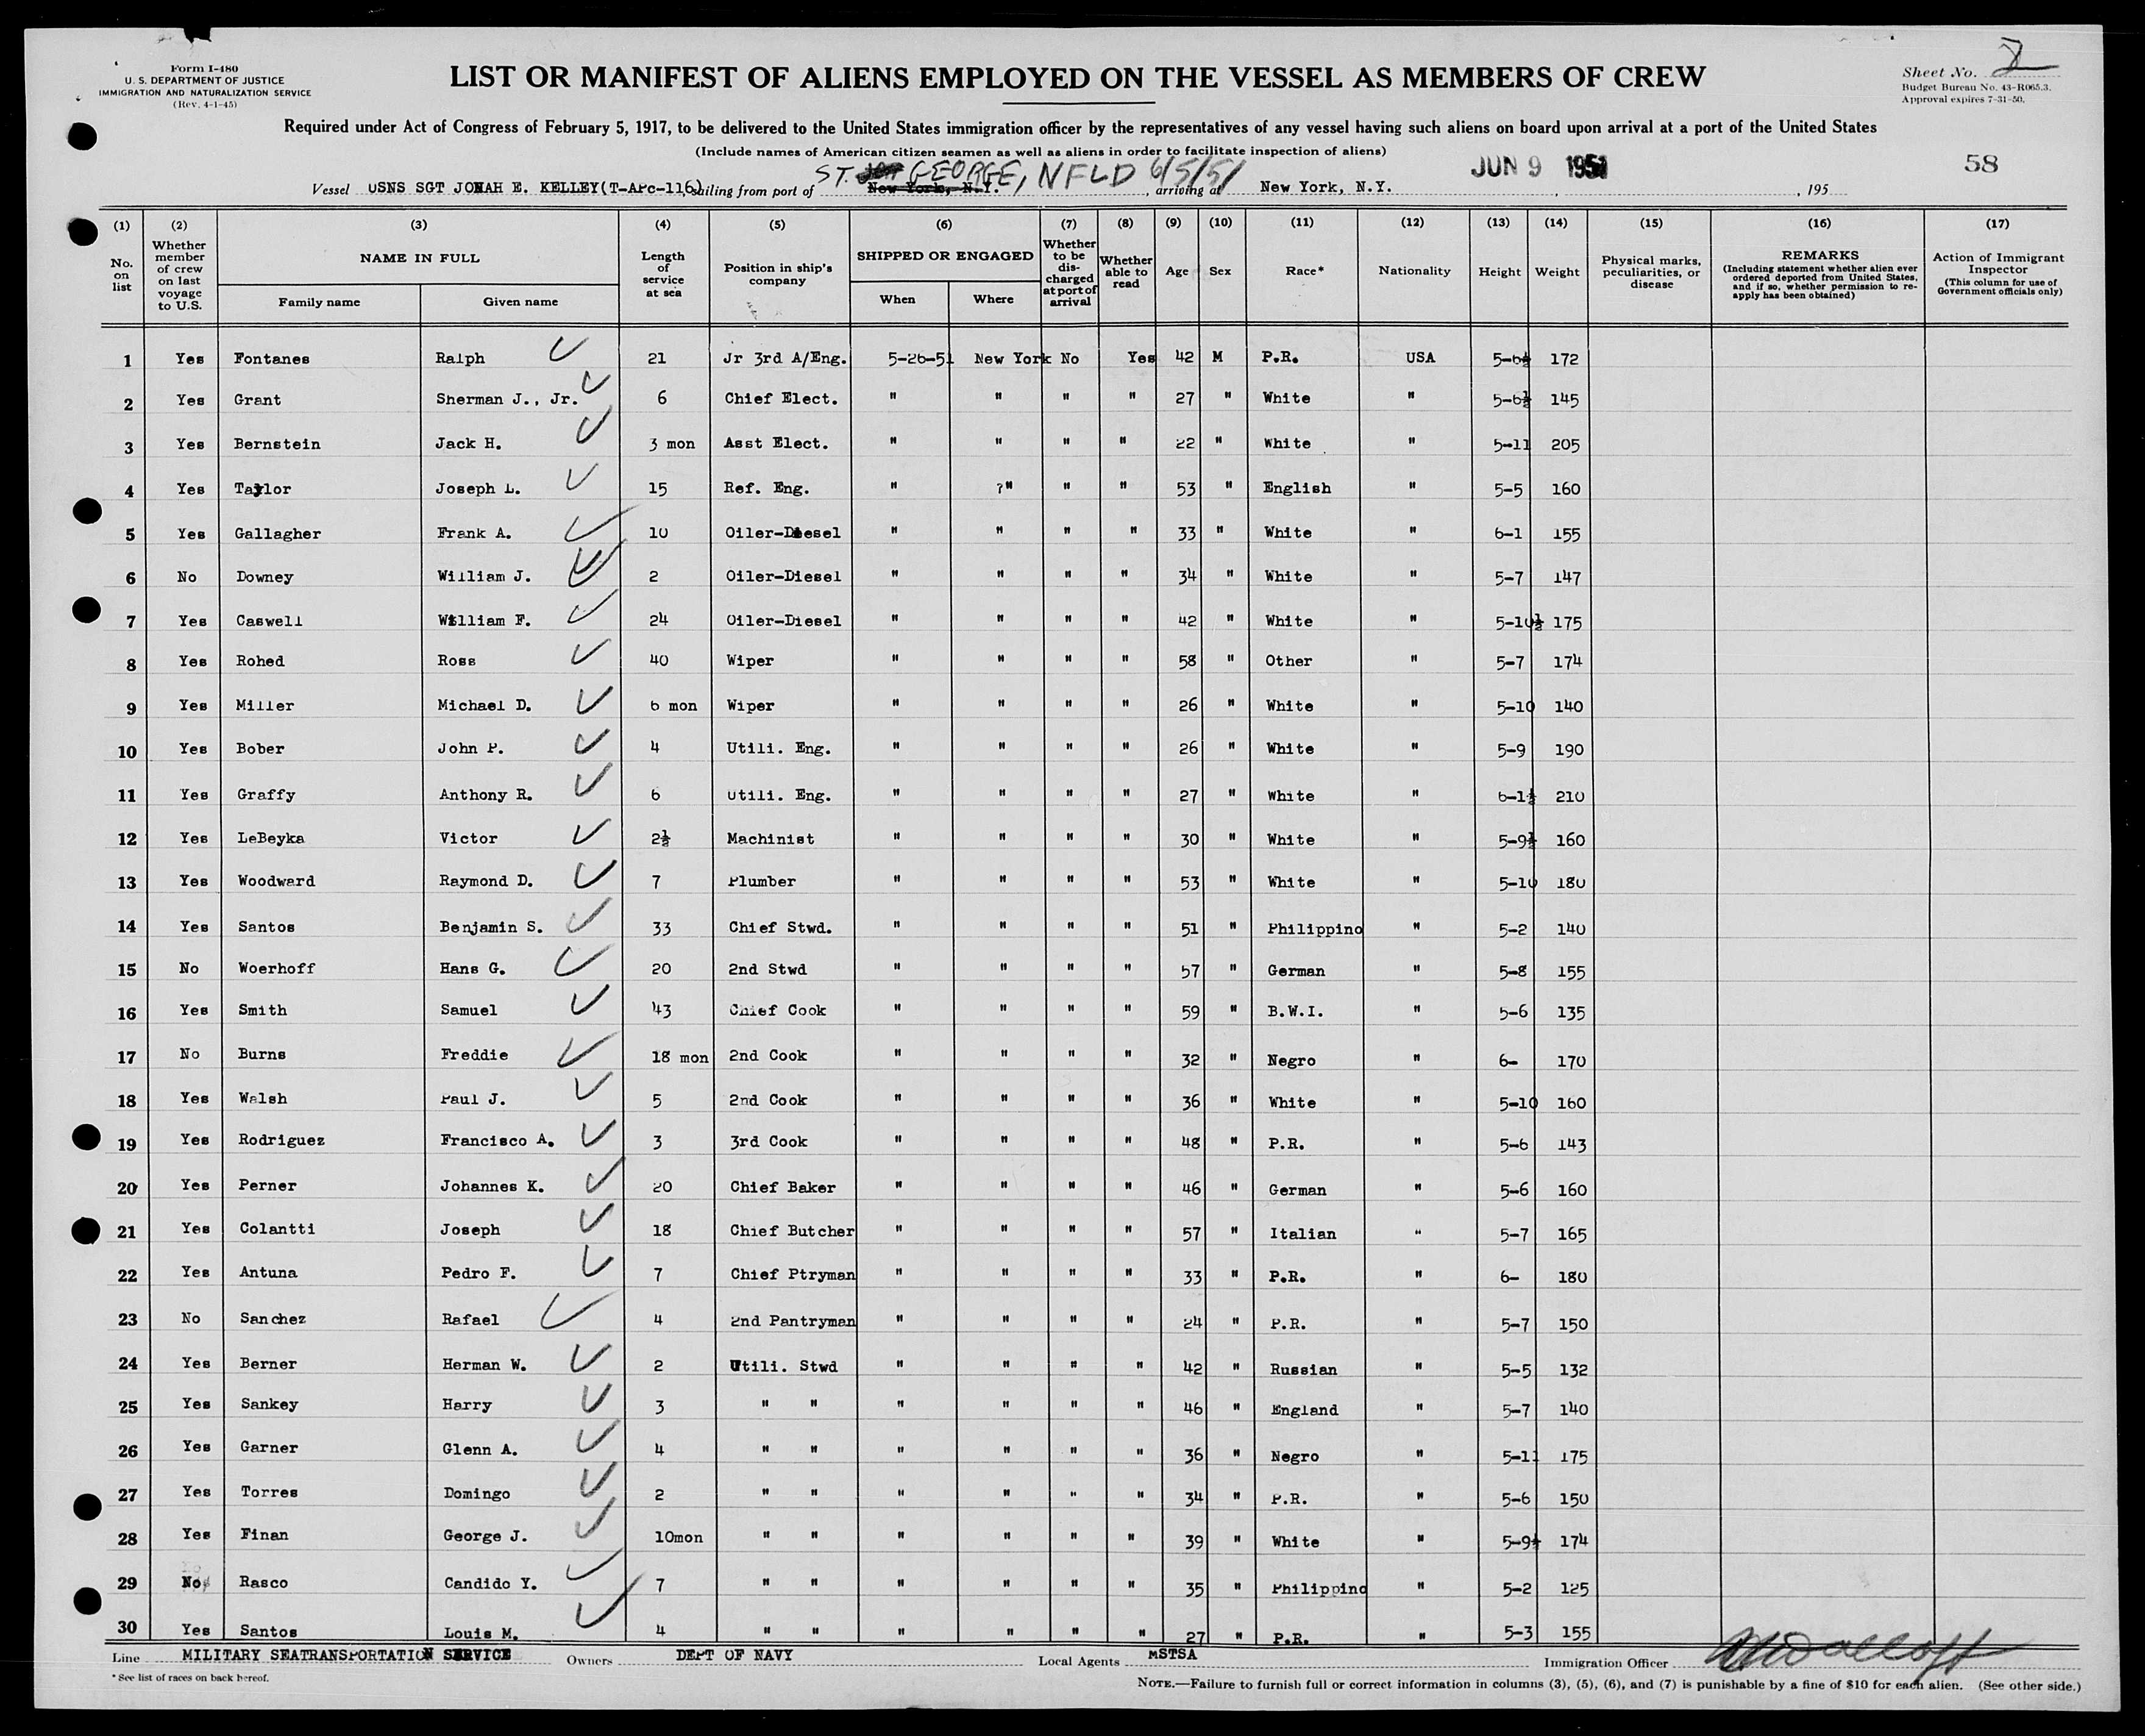 Form I-480
U. S. DEPARTMENT OF JUSTICE
IMMIGRATION AND NATURALIZATION SERVICE
(Rev. 4-1-45)
LIST OR MANIFEST OF ALIENS EMPLOYED ON THE VESSEL AS MEMBERS OF CREW
Sheet No. 2
Budget Bureau No. 43-R065.3.
Approval expires 7-31-50.
Required under Act of Congress of February 5, 1917, to be delivered to the United States immigration officer by the representatives of any vessel having such aliens on board upon arrival at a port of the United States
(Include names of American citizen seamen as well as aliens in order to facilitate inspection of aliens)
ST. GEORGE, NFLD 6/5/51 JUN 9 1951 58
Vessel USNS SGT JONAH E. KELLEY(T-APc-116), sailing from port of New York, N.Y. , arriving at New York, N.Y. , , 195
(1) (2) (3) (4) (5) (6) (7) (8) (9) (10) (11) (12) (13) (14) (15) (16) (17)
No. on list Whether member of crew on last voyage to U.S. NAME IN FULL Family name Given name Length of service at sea Position in ship's company SHIPPED OR ENGAGED When Where Whether to be discharged at port of arrival Whether able to read Age Sex Race* Nationality Height Weight Physical marks, peculiarities, or disease REMARKS (Including statement whether alien ever ordered deported from United States, and if so, whether permission to re-apply has been obtained) Action of Immigrant Inspector (This column for use of Government officials only)
1 Yes Fontanes Ralph 21 Jr 3rd A/Eng. 5-26-51 New York No Yes 42 M P.R. USA 5-6½ 172
2 Yes Grant Sherman J., Jr. 6 Chief Elect. " " " " 27 " White " 5-6½ 145
3 Yes Bernstein Jack H. 3 mon Asst Elect. " " " " 22 " White " 5-11 205
4 Yes Taylor Joseph L. 15 Ref. Eng. " ?" " " 53 " English " 5-5 160
5 Yes Gallagher Frank A. 10 Oiler-Diesel " " " " 33 " White " 6-1 155
6 No Downey William J. 2 Oiler-Diesel " " " " 34 " White " 5-7 147
7 Yes Caswell William F. 24 Oiler-Diesel " " " " 42 " White " 5-10½ 175
8 Yes Rohed Ross 40 Wiper " " " " 58 " Other " 5-7 174
9 Yes Miller Michael D. 6 mon Wiper " " " " 26 " White " 5-10 140
10 Yes Bober John P. 4 Utili. Eng. " " " " 26 " White " 5-9 190
11 Yes Graffy Anthony R. 6 Utili. Eng. " " " " 27 " White " 6-1½ 210
12 Yes LeBeyka Victor 2½ Machinist " " " " 30 " White " 5-9½ 160
13 Yes Woodward Raymond D. 7 Plumber " " " " 53 " White " 5-10 180
14 Yes Santos Benjamin S. 33 Chief Stwd. " " " " 51 " Philippino " 5-2 140
15 No Woerhoff Hans G. 20 2nd Stwd " " " " 57 " German " 5-8 155
16 Yes Smith Samuel 43 Chief Cook " " " " 59 " B.W.I. " 5-6 135
17 No Burns Freddie 18 mon 2nd Cook " " " " 32 " Negro " 6- 170
18 Yes Walsh Paul J. 5 2nd Cook " " " " 36 " White " 5-10 160
19 Yes Rodriguez Francisco A. 3 3rd Cook " " " " 48 " P.R. " 5-6 143
20 Yes Perner Johannes K. 20 Chief Baker " " " " 46 " German " 5-6 160
21 Yes Colantti Joseph 18 Chief Butcher " " " " 57 " Italian " 5-7 165
22 Yes Antuna Pedro F. 7 Chief Ptryman " " " " 33 " P.R. " 6- 180
23 No Sanchez Rafael 4 2nd Pantryman " " " " 24 " P.R. " 5-7 150
24 Yes Berner Herman W. 2 Utili. Stwd " " " " 42 " Russian " 5-5 132
25 Yes Sankey Harry 3 " " " " " " 46 " England " 5-7 140
26 Yes Garner Glenn A. 4 " " " " " " 36 " Negro " 5-11 175
27 Yes Torres Domingo 2 " " " " " " 34 " P.R. " 5-6 150
28 Yes Finan George J. 10mon " " " " " " 39 " White " 5-9½ 174
29 No Rasco Candido Y. 7 " " " " " " 35 " Philippino " 5-2 125
30 Yes Santos Louis M. 4 " " " " " " 27 " P.R. " 5-3 155
Line MILITARY SEATRANSPORTATION SERVICE Owners DEPT OF NAVY Local Agents MSTSA Immigration Officer
* See list of races on back hereof.
NOTE.—Failure to furnish full or correct information in columns (3), (5), (6), and (7) is punishable by a fine of $10 for each alien. (See other side.)